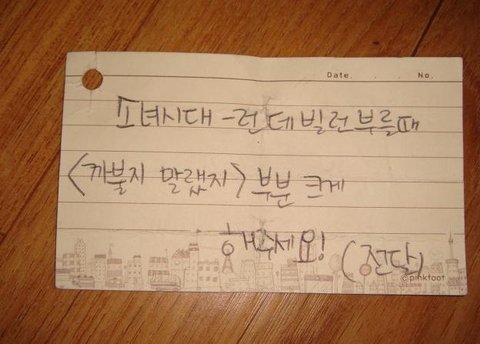 Date. No.
소녀시대 - 런데빌런 부를때
<까불지 말랬지> 부분 크게
해주세요! (전달)
©pinkfoot